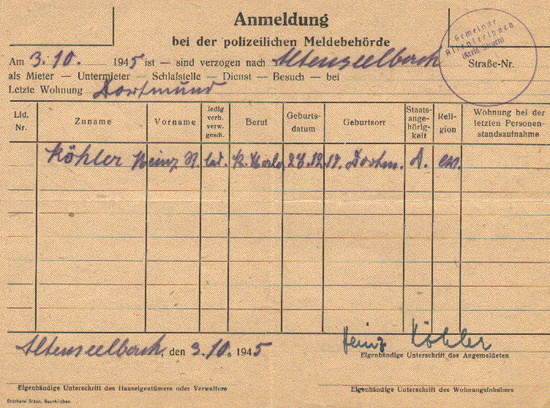 Anmeldung
bei der polizeilichen Meldebehörde
Gemeinde Altenseelbach
Am 3.10. 1945 ist — sind verzogen nach Altenseelbach Straße-Nr.
als Mieter — Untermieter — Schlafstelle — Dienst — Besuch — bei
Letzte Wohnung Dortmund
Lfd. Nr. Zuname Vorname ledig verh. verw. gesch. Beruf Geburts-datum Geburtsort Staats-ange-hörig-keit Reli-gion Wohnung bei der letzten Personen-standsaufnahme
Köhler Heinz led. Dortm. ev.
Altenseelbach, den 3.10. 1945 Heinz Köhler
Eigenhändige Unterschrift des Angemeldeten
Eigenhändige Unterschrift des Hauseigentümers oder Verwalters Eigenhändige Unterschrift des Wohnungsinhabers
Druckerei Braun, Neunkirchen